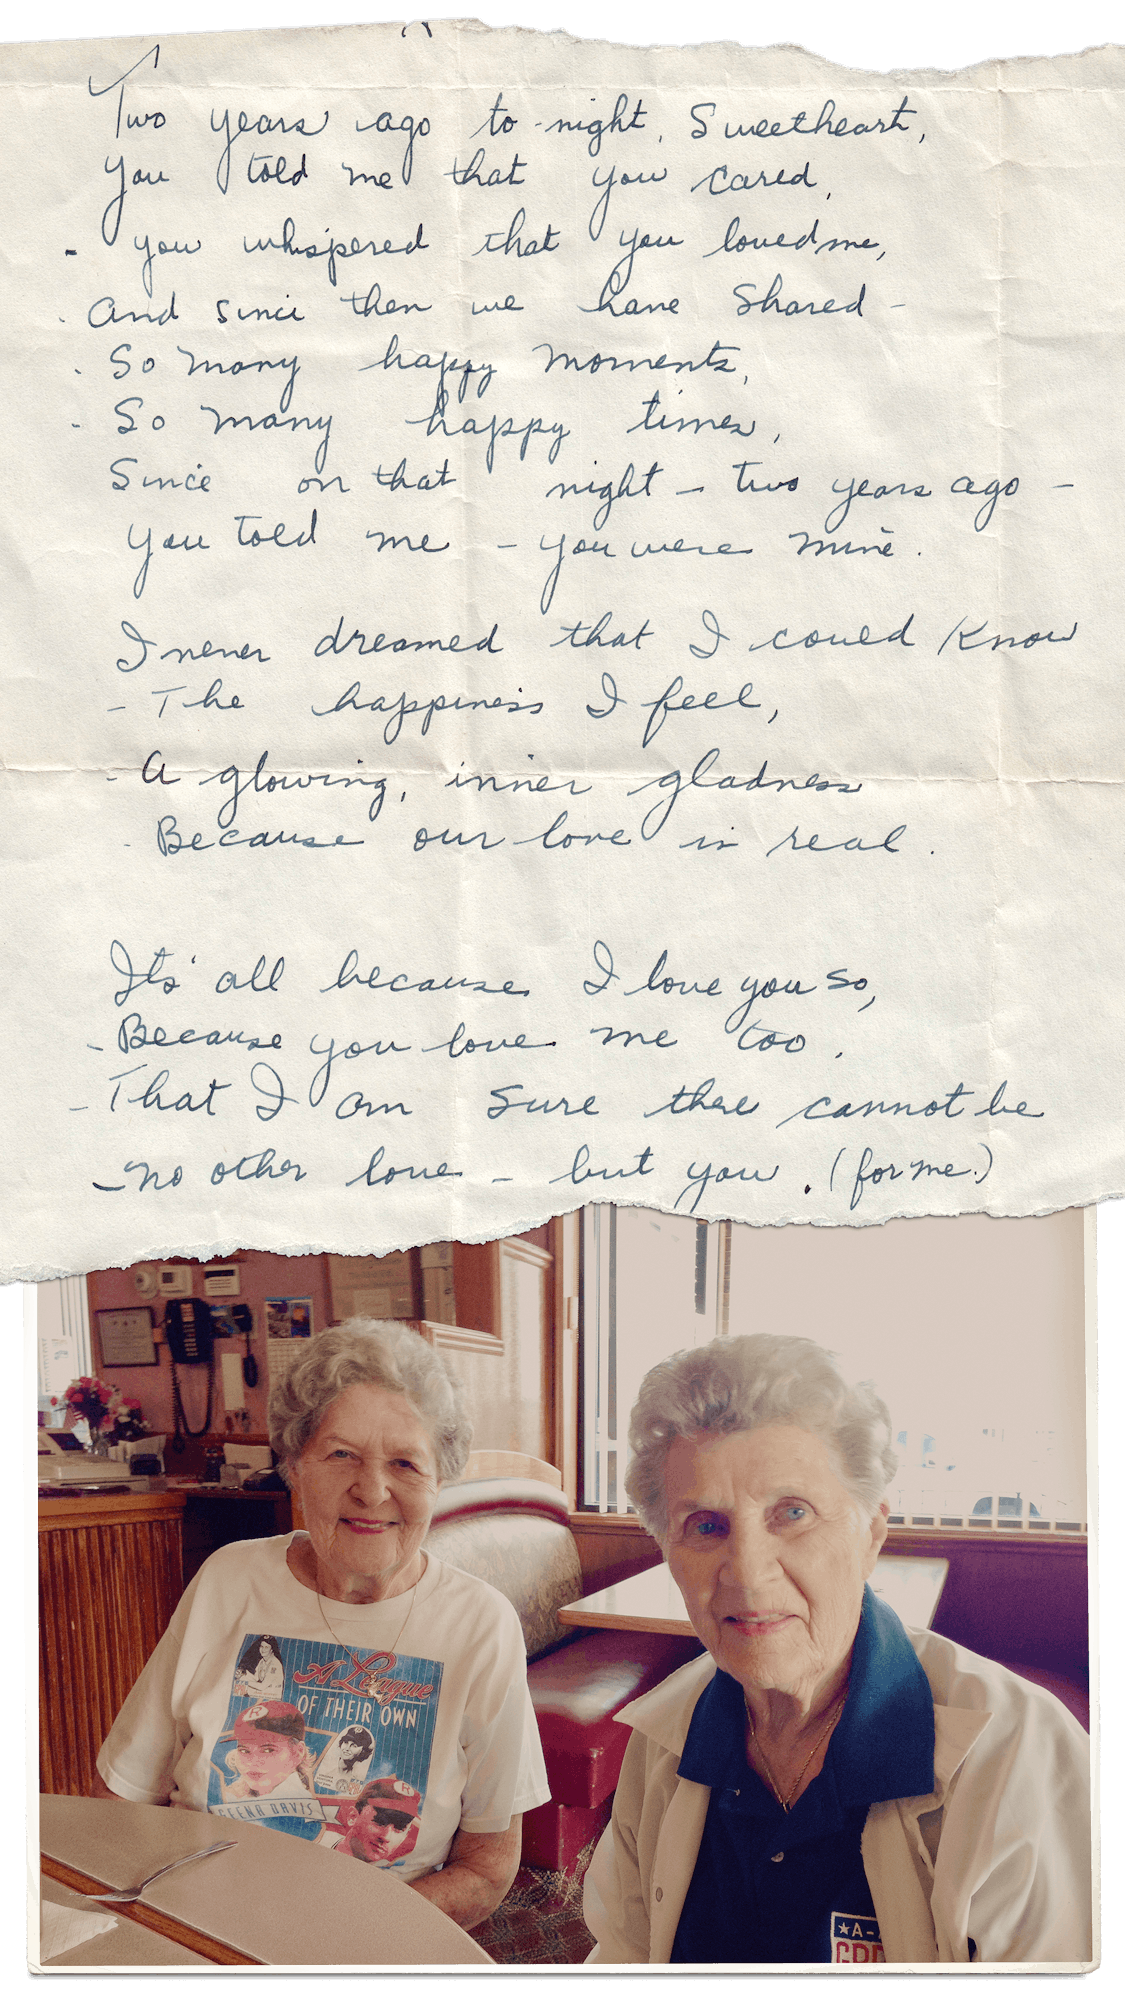 Two years ago to-night, Sweetheart,
You told me that you cared,
- you whispered that you loved me,
. And since then we have shared -
. So many happy moments,
- So many happy times,
Since on that night - two years ago -
You told me - you were mine.
I never dreamed that I could know
- The happiness I feel,
- A glowing, inner gladness
- Because our love is real.
It's all because I love you so,
- Because you love me too.
- That I am sure there cannot be
- no other love - but you. (for me.)
A League
OF THEIR OWN
GEENA DAVIS
R
R
★A-